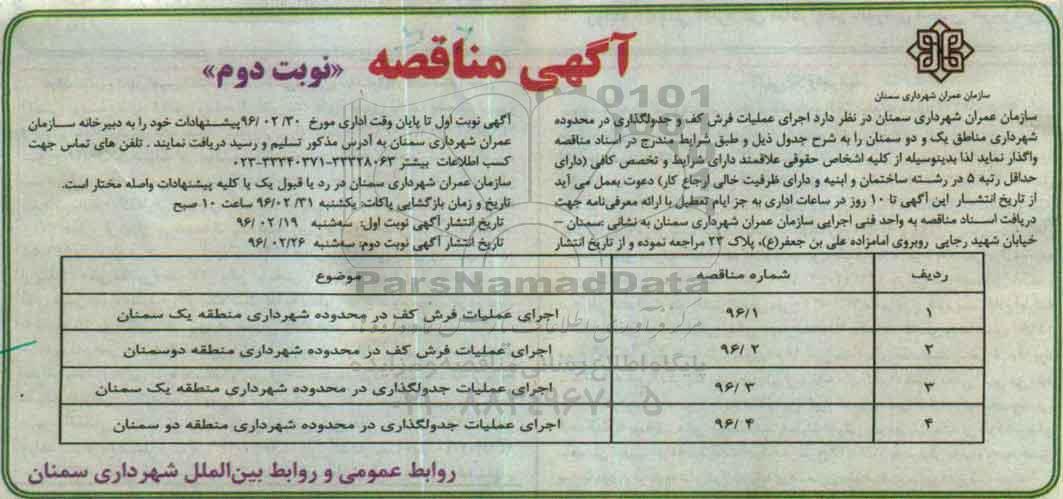 آگهی مناقصه «نوبت دوم»
سازمان عمران شهرداری سمنان
سازمان عمران شهرداری سمنان در نظر دارد اجرای عملیات فرش کف و جدولگذاری در محدوده
شهرداری مناطق یک و دو سمنان را به شرح جدول ذیل و طبق شرایط مندرج در اسناد مناقصه
واگذار نماید لذا بدینوسیله از کلیه اشخاص حقوقی علاقمند دارای شرایط و تخصص کافی (دارای
حداقل رتبه ۵ در رشته ساختمان و ابنیه و دارای ظرفیت خالی ارجاع کار) دعوت بعمل می آید
از تاریخ انتشار این آگهی تا ۱۰ روز در ساعات اداری به جز ایام تعطیل با ارائه معرفی‌نامه جهت
دریافت اسناد مناقصه به واحد فنی اجرایی سازمان عمران شهرداری سمنان به نشانی :سمنان –
خیابان شهید رجایی روبروی امامزاده علی بن جعفر(ع)، پلاک ۲۳ مراجعه نموده و از تاریخ انتشار
آگهی نوبت اول تا پایان وقت اداری مورخ ۹۶/۰۲/۳۰ پیشنهادات خود را به دبیرخانه سازمان
عمران شهرداری سمنان به آدرس مذکور تسلیم و رسید دریافت نمایند . تلفن های تماس جهت
کسب اطلاعات بیشتر ۳۳۳۲۸۰۶۳-۳۳۳۴۰۳۷۱-۰۲۳
سازمان عمران شهرداری سمنان در رد یا قبول یک یا کلیه پیشنهادات واصله مختار است.
تاریخ و زمان بازگشایی پاکات: یکشنبه ۹۶/۰۲/۳۱ ساعت ۱۰ صبح
تاریخ انتشار آگهی نوبت اول: سه‌شنبه ۹۶/۰۲/۱۹
تاریخ انتشار آگهی نوبت دوم: سه‌شنبه ۹۶/۰۲/۲۶
ردیف شماره مناقصه موضوع
۱ ۹۶/۱ اجرای عملیات فرش کف در محدوده شهرداری منطقه یک سمنان
۲ ۹۶/۲ اجرای عملیات فرش کف در محدوده شهرداری منطقه دوسمنان
۳ ۹۶/۳ اجرای عملیات جدولگذاری در محدوده شهرداری منطقه یک سمنان
۴ ۹۶/۴ اجرای عملیات جدولگذاری در محدوده شهرداری منطقه دو سمنان
روابط عمومی و روابط بین‌الملل شهرداری سمنان
ParsNamadData